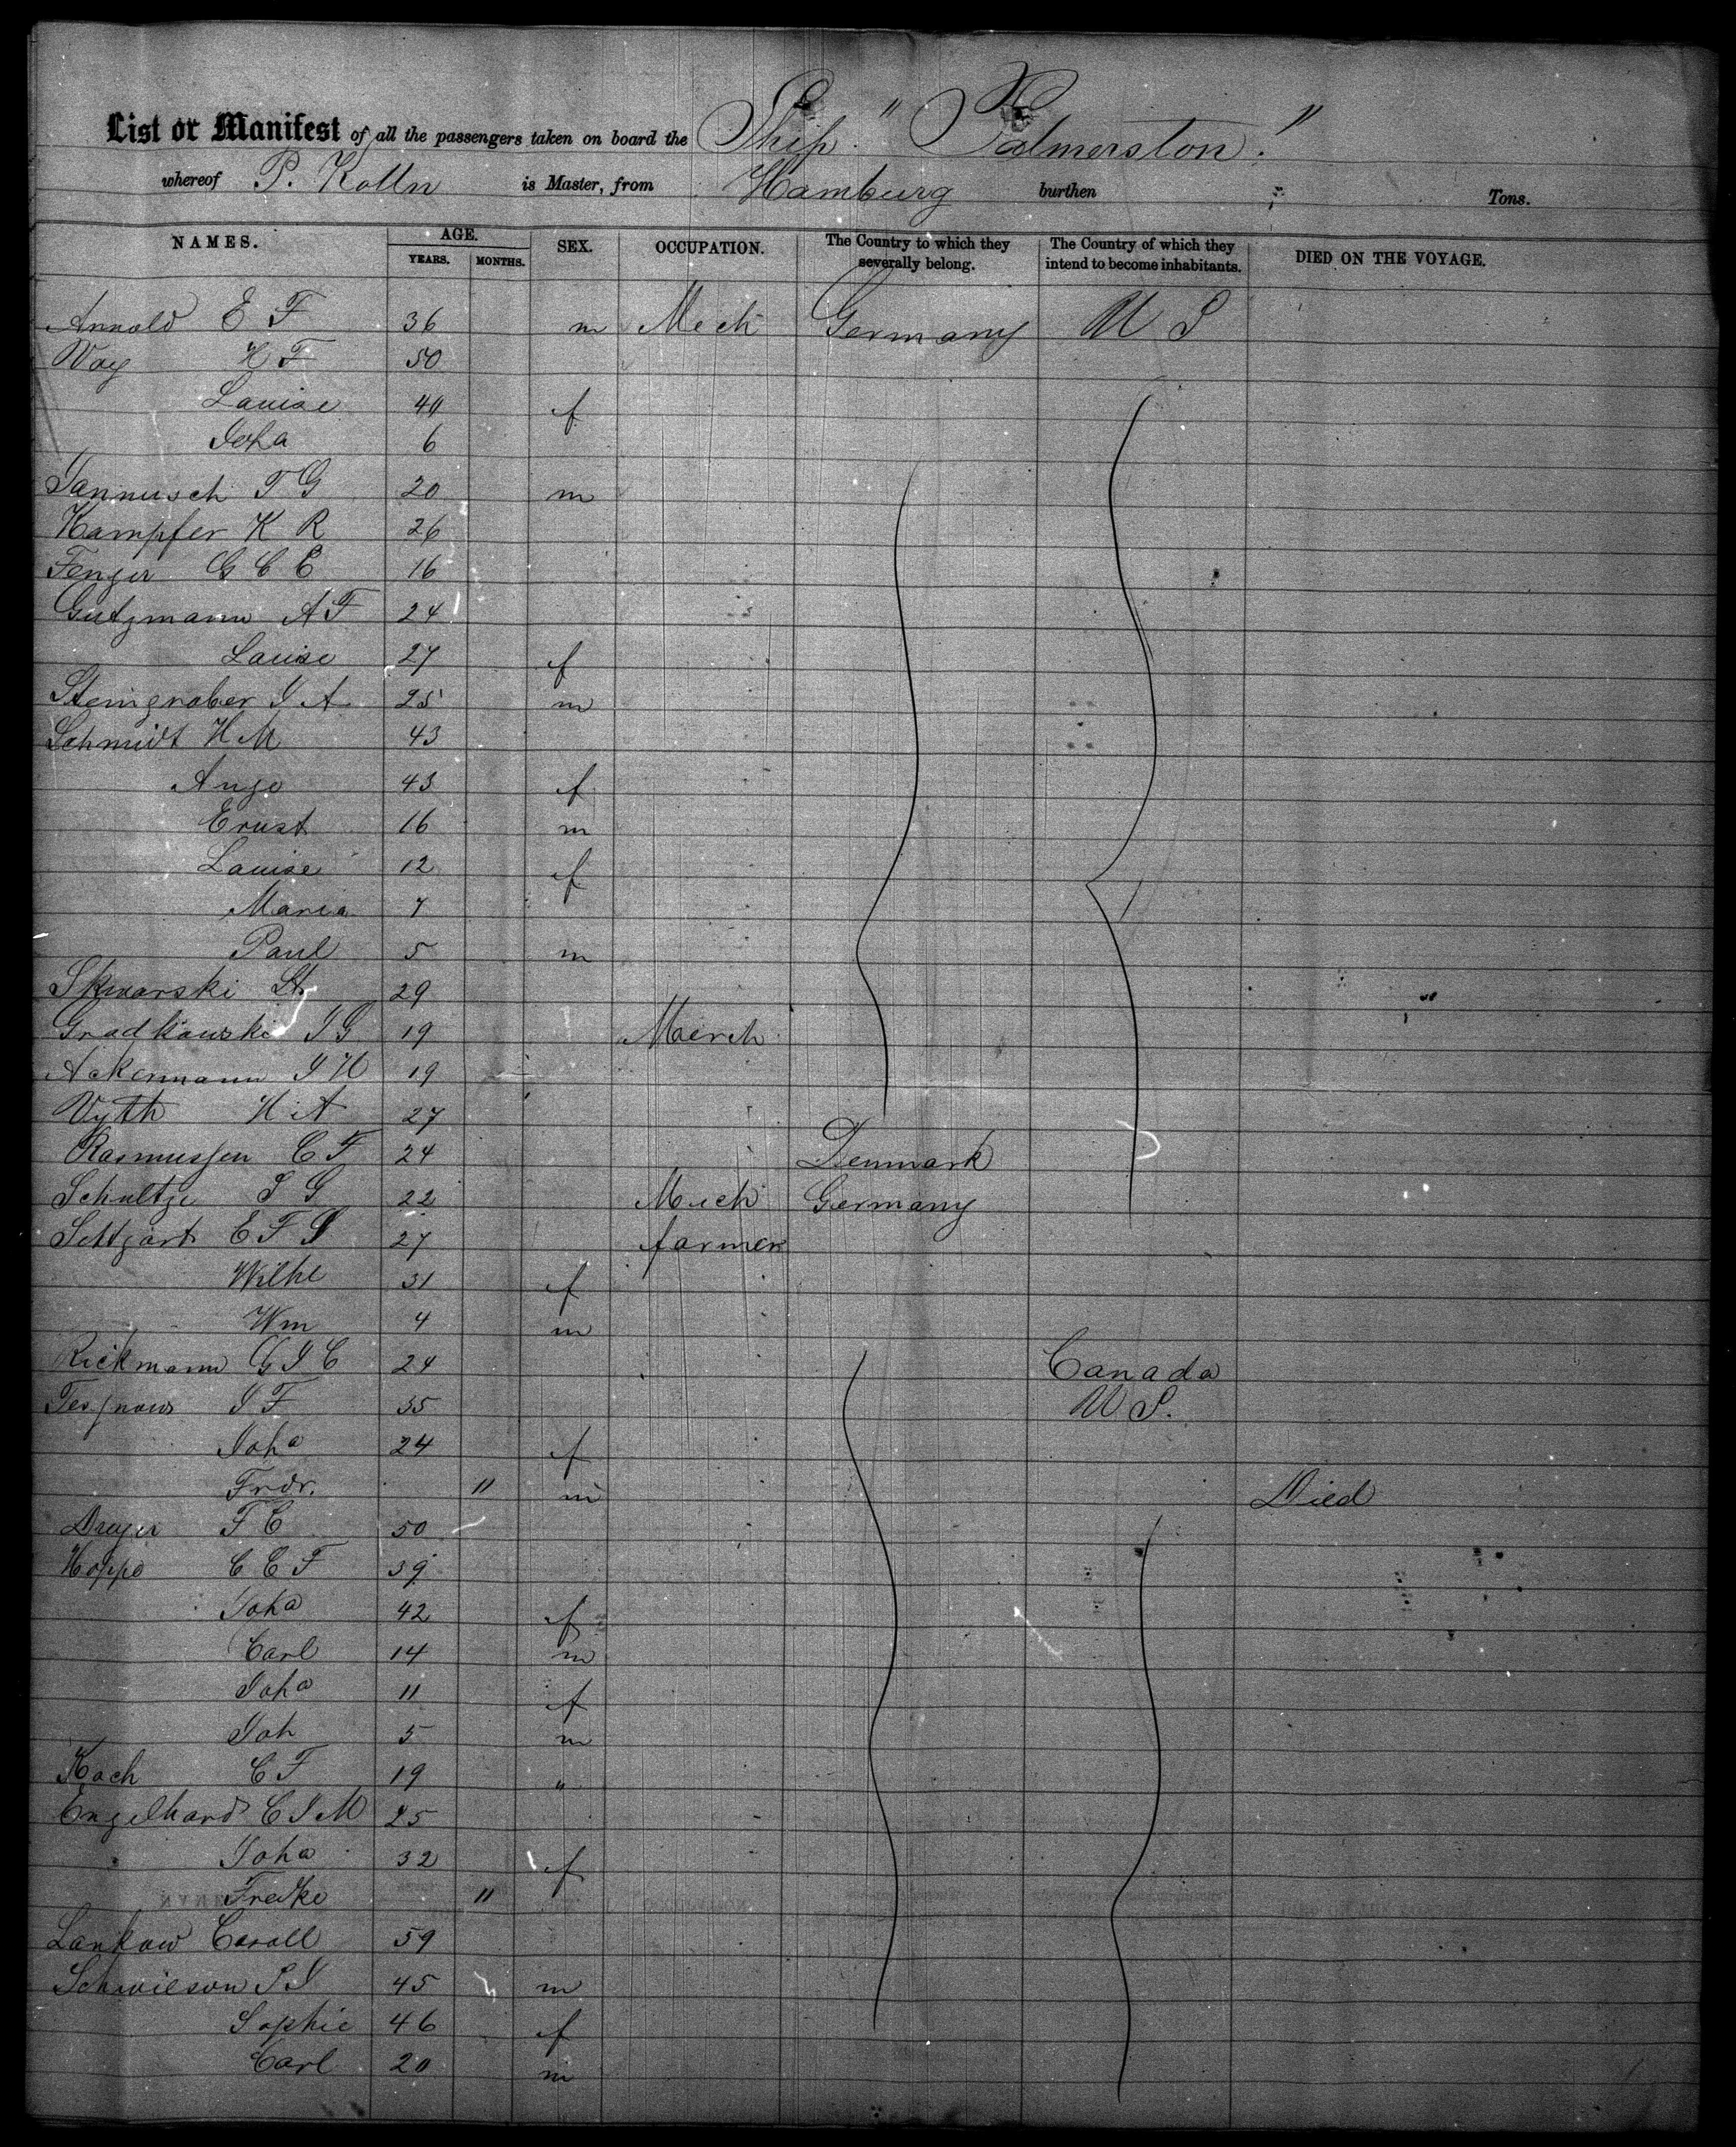 List or Manifest of all the passengers taken on board the Ship "Palmerston."
whereof P. Kölln is Master, from Hamburg burthen Tons.
NAMES. AGE. YEARS. MONTHS. SEX. OCCUPATION. The Country to which they severally belong. The Country of which they intend to become inhabitants. DIED ON THE VOYAGE.
Arnold E F 36 m Mech Germany U S
Way H F 50
Louise 40 f
Joha 6
Jannusch T G 20 m
Kampfer K R 26
Fenger G C E 16
Gutzmann A F 24
Louise 27 f
Steingraber J A 25 m
Schmidt H M 43
Ange 43 f
Ernst 16 m
Louise 12 f
Maria 7
Paul 5 m
Skwarski St 29
Gradkowski J G 19 Merch
Ackermann J H 19
Vyth H A 27
Rasmussen C F 24 Denmark
Schultze J G 22 Mech Germany
E F J 27 farmer
Wilhe 31 f
Wm 4 m
Rickmann G J C 24 Canada
J F 35 U S.
Joha 24 f
Frdr. 11 m Died
Dreyer F C 50
Hoppe C E F 39
Joha 42 f
Carl 14 m
Joha 11 f
Joh 5 m
Koch C F 19 "
Engelhard C J M 25
Joha 32 f
Fredke 11
Lankow Caroll 59
P J 45 m
Sophie 46 f
Carl 20 m